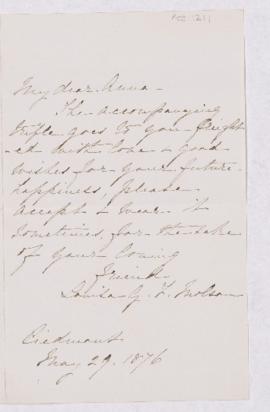 My dear Anna -
The accompanying
trifle goes to you freight
-ed with love & good
wishes for your future
happiness, please
accept & wear it
sometimes for the sake
of your loving
friend
Louisa G. F. Molson
Piedmont
May 29. 1876